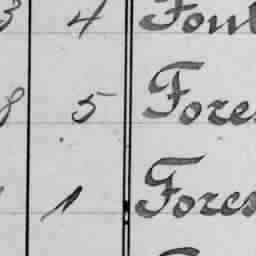 3 4 Foul
8 5 Fores
1 Fores